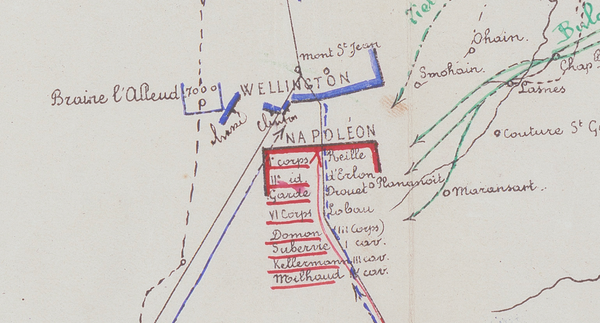 Tier
Bülo
mont St Jean
Ohain.
Smohain.
Chap
Lasnes
WELLINGTON
Braine l'Alleud
7000
Chassé
Clinton
NAPOLÉON
Couture St G
1er corps Reille
IIe id. d'Erlon
Garde Drouet
Plancenoit
Maransart.
VI Corps Lobau
Domon (III Corps)
Subervie I cav.
Kellermann III cav.
Milhaud IV cav.